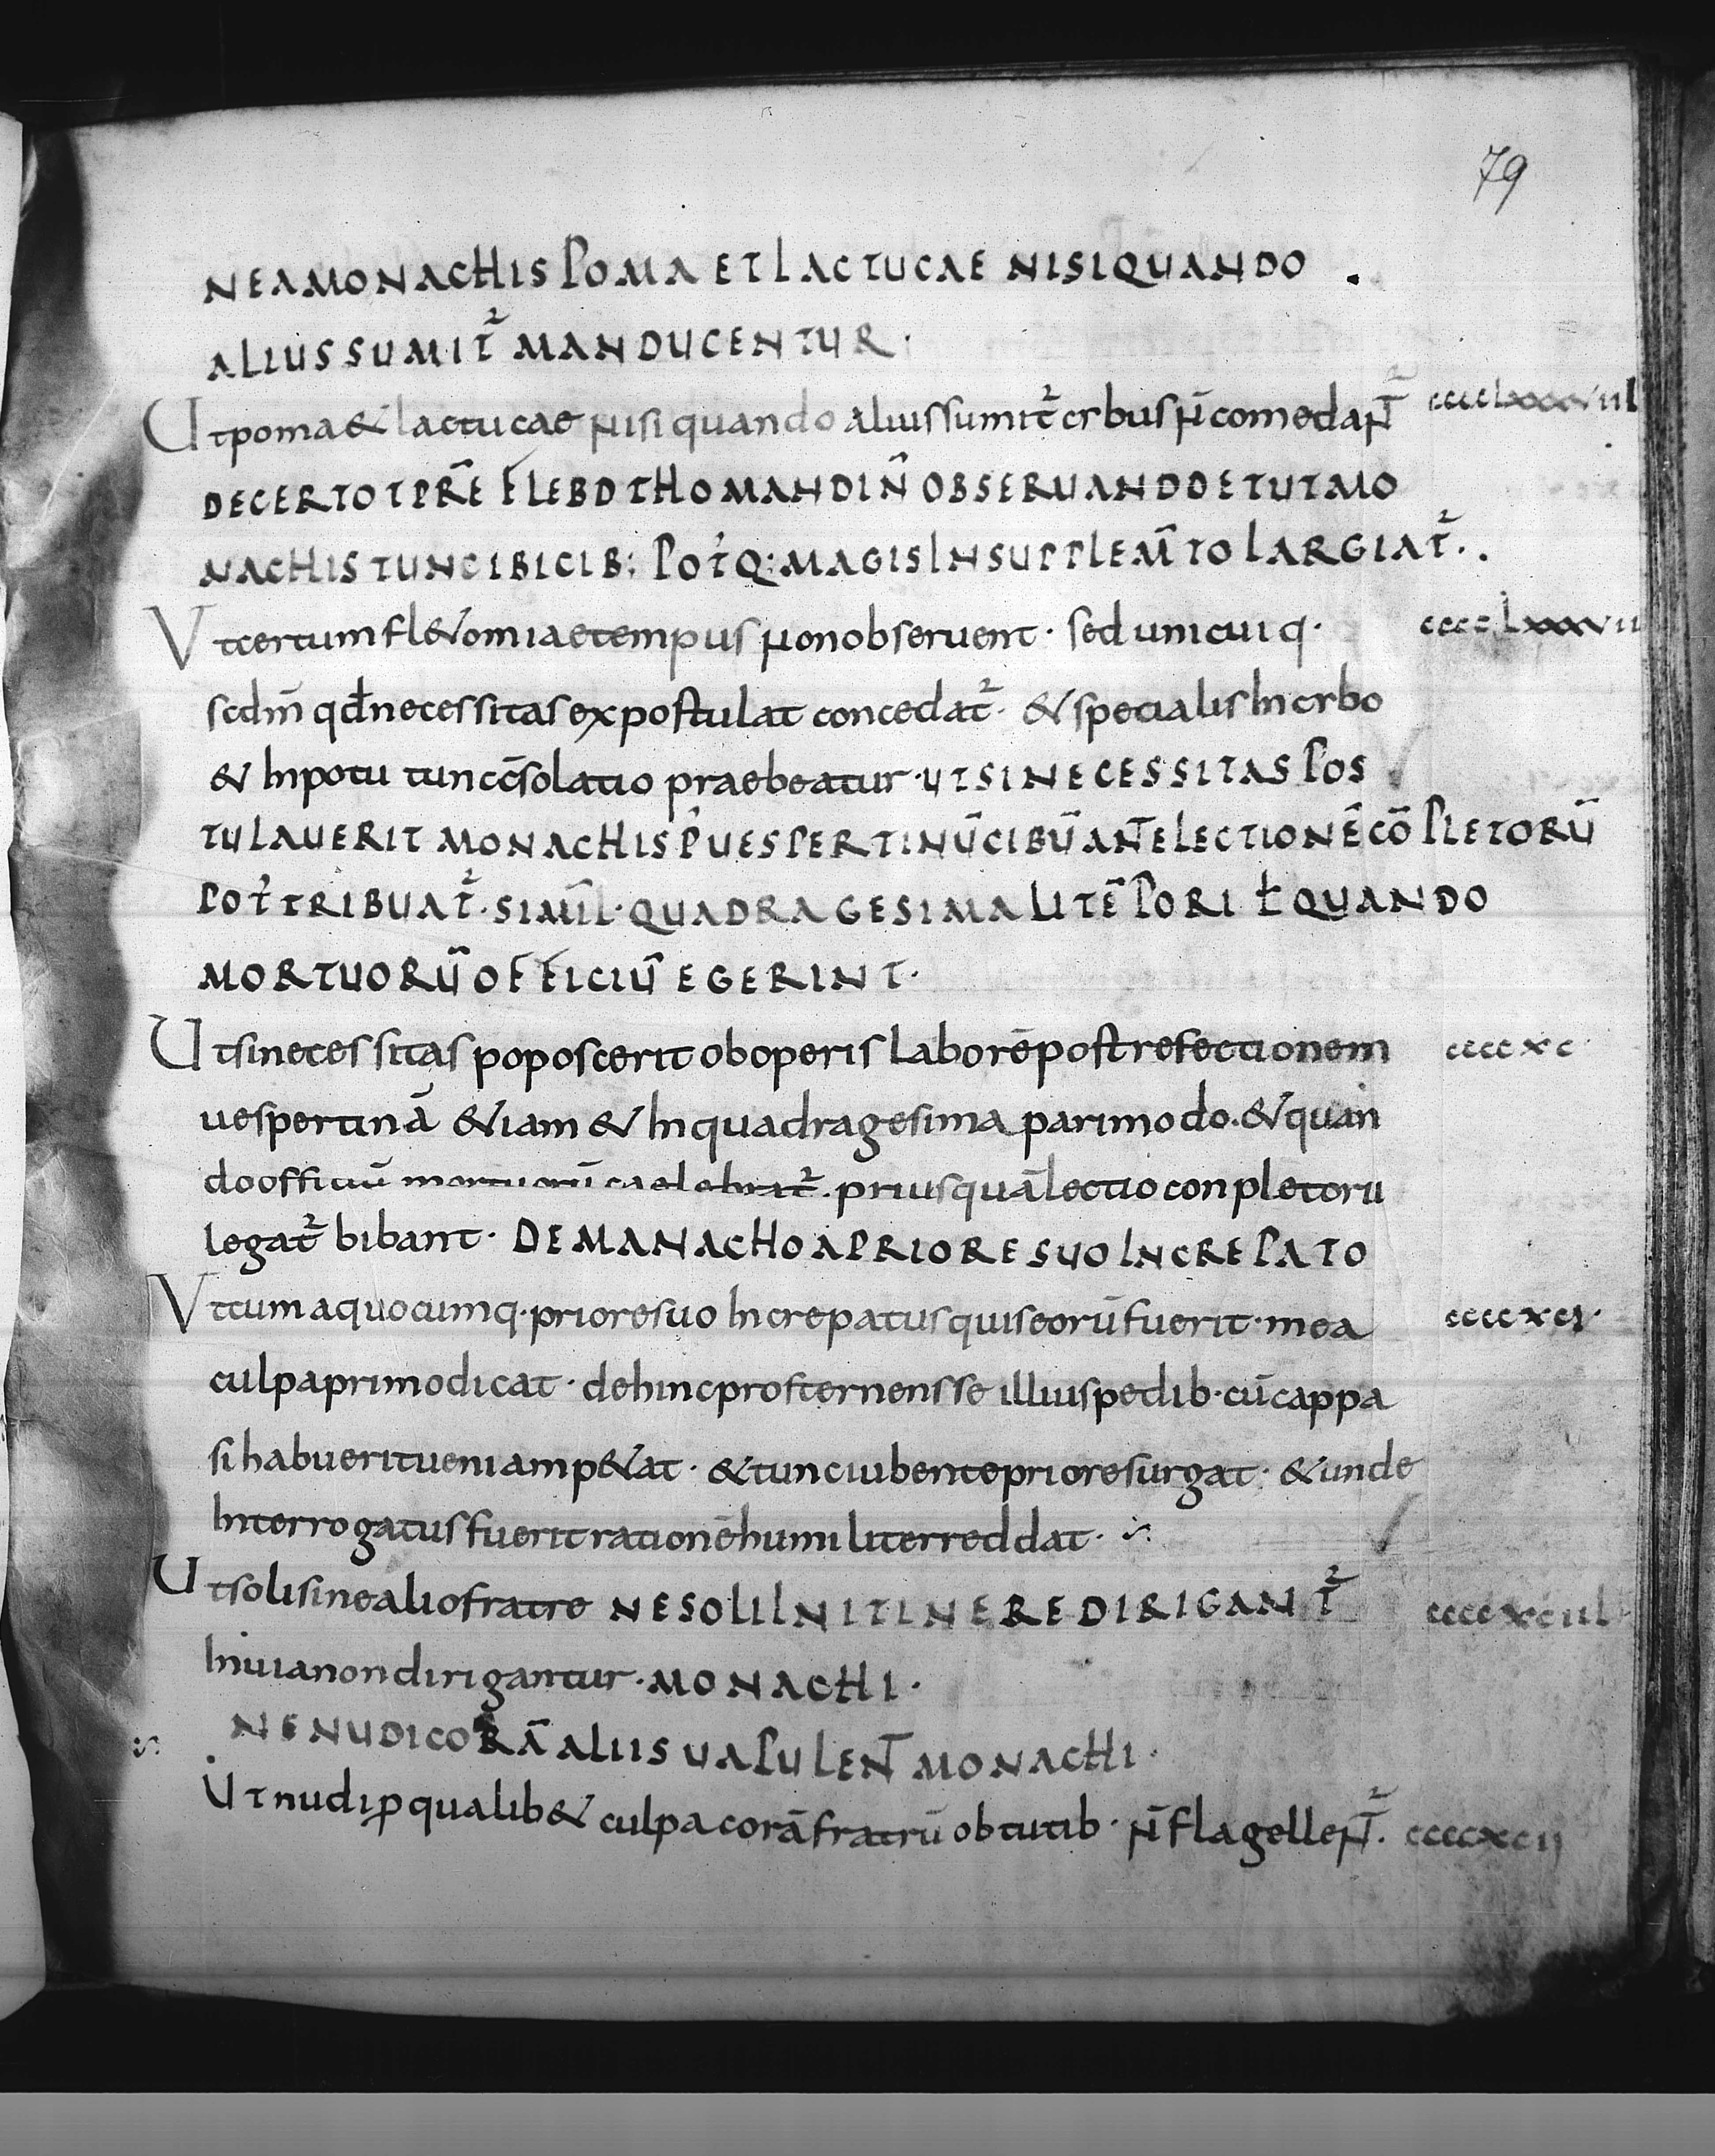 79
NEAMONACHIS POMA ET LACTUCAE NISIQUANDO .
ALIUSSUMIT᷑ MANDUCENTUR·
Utpoma& lactucae nisi quando aliussumit᷑ cybus n̄ comedaNT᷑ ccccLxxxviii
DECERTOTPR̄E FLEBDTHOMANDIN̄ OBSERUANDOETUTMO
NACHISTUNCIBICIB; POT᷑Q:MAGISINSUPPLEM̄TO LARGIAT᷑..
Vtcertumfl&omiaetempus nonobseruent· sed unicuiq· ccccLxxxvii
scdm̄ qđnecessitasexpostulat concedat᷑· & specialisIncybo
& Inpotu tuncc̄solatio praebeatur·UTSINECESSITAS POS
TULAUERIT MONACHISP̄UESPERTINŪCIBŪANTELECTIONĒCŌPLETORŪ
POT᷑TRIBUAT᷑·SIMIL̄·QUADRAGESIMALITĒPORI Ł QUANDO
MORTUORŪOFFICIŪ EGERINT·
Utsinecessitas poposcerit oboperis laborēpostrefectionem ccccxc·
uespertinā &iam & Inquadragesima parimodo·&quan
doofficiū mortuorū caelebrat᷑·priusquālectio conpletoru
legat᷑ bibant· DEMANACHOAPRIORESUOINCREPATO
Vtcumaquocumq·prioresuo Increpatusquiseorūfuerit·mea ccccxci·
culpaprimodicat· dehincprosternensse illiuspedib·cūcappa
sihaberitueniamp&at· &tunciubenteprioresurgat· &unde
Interrogatusfueritrationēhumiliterreddat·
Utsolisinealiofratre NESOLIINITINEREDIRIGANT᷑ ccccxciii·
Inuianondirigantur·MONACHI·
NENUDICORĀALIISUAPULENT MONACHI·
Utnudipqualib& culpacorāfratrū obtutib· n̄flagelleNT᷑· ccccxcii